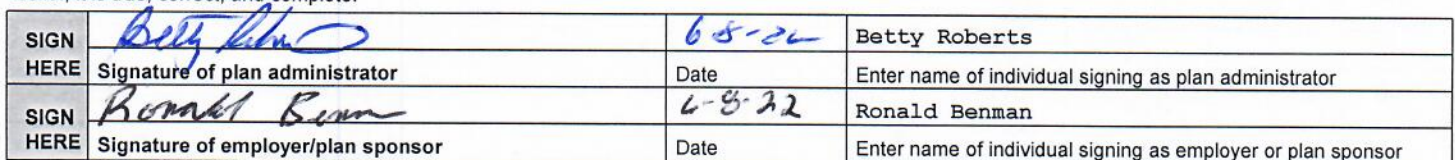 SIGN Betty 6-8-22 Betty Roberts
HERE Signature of plan administrator Date Enter name of individual signing as plan administrator
SIGN Ronald 6-8-22 Ronald Benman
HERE Signature of employer/plan sponsor Date Enter name of individual signing as employer or plan sponsor